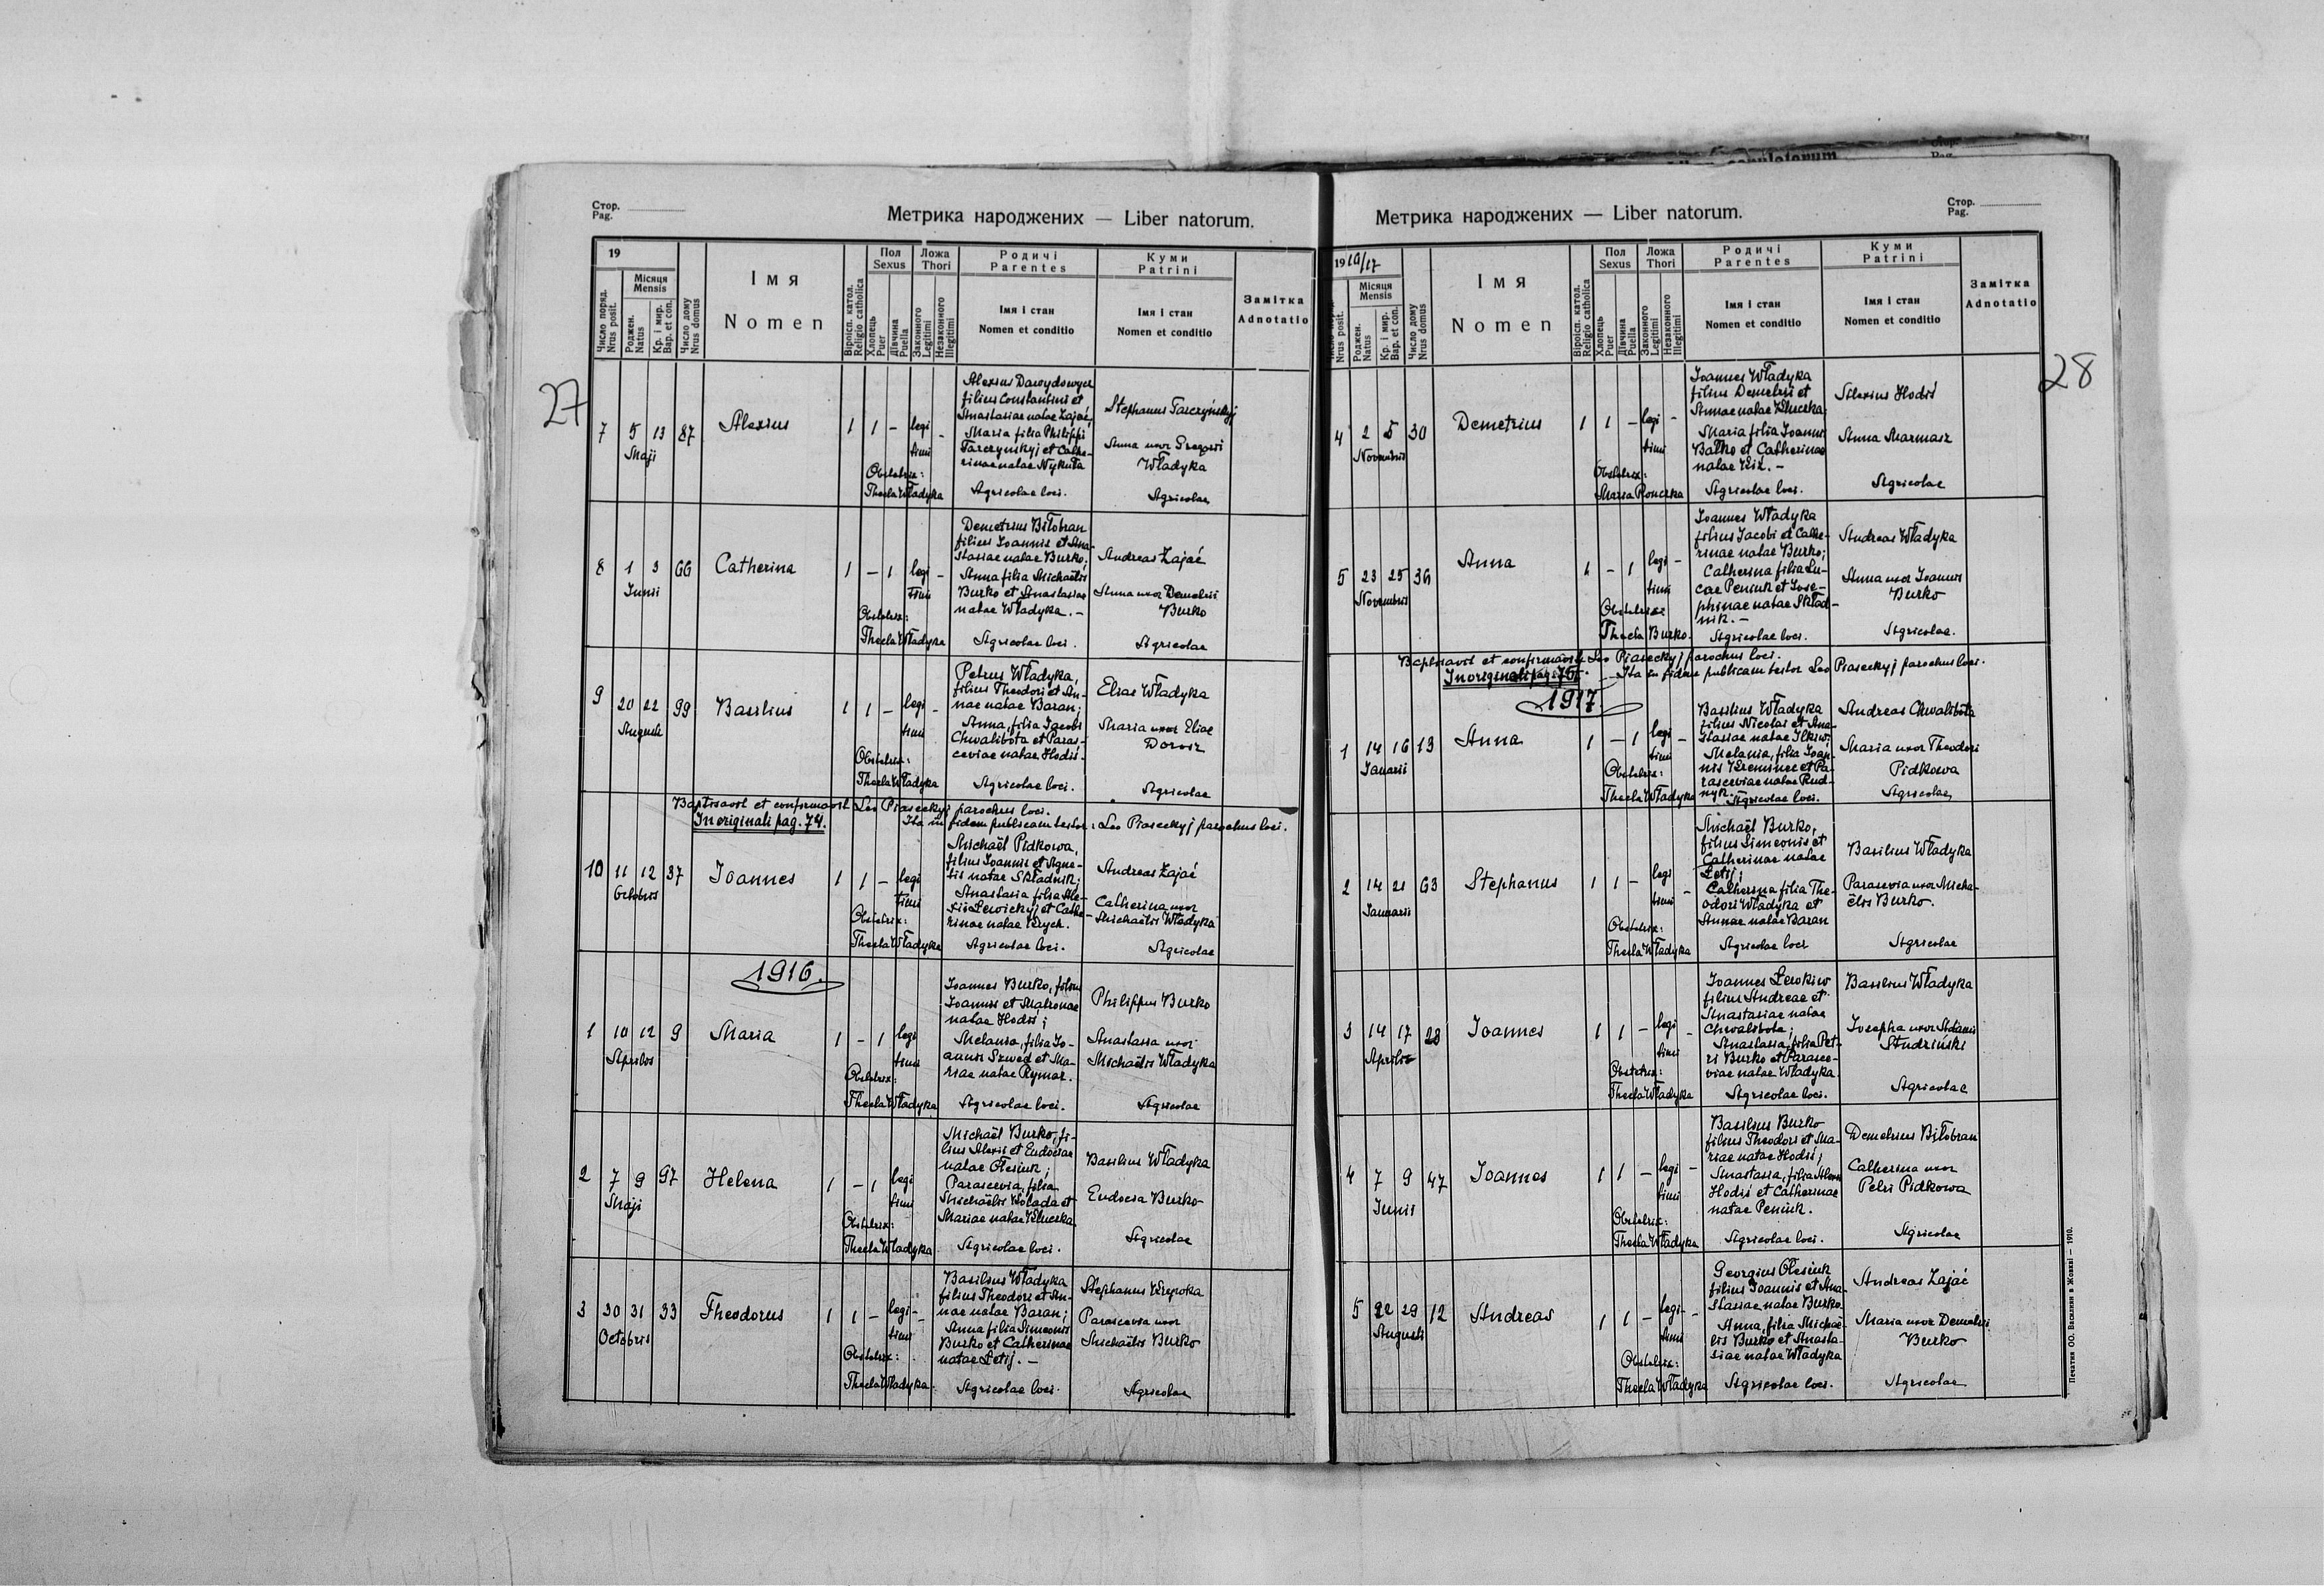 27
Стор.
Pag.
Метрика народжених — Liber natorum.
19
Число поряд.
Nrus posit.
Місяця
Mensis
Роджен.
Natus
Кр. і мир.
Bap. et con.
Число дому
Nrus domus
Імя
Nomen
Віроісп. катол.
Religio catholica
Пол
Sexus
Хлопець
Puer
Дівчина
Puella
Ложа
Thori
Законного
Legitimi
Незаконного
Illegitimi
Родичі
Parentes
Імя і стан
Nomen et conditio
Куми
Patrini
Імя і стан
Nomen et conditio
Замітка
Adnotatio
7 5 13 87 Alexius 1 1 – legi –
Maji timi
Obstetrix:
Thecla Władyka
Alexius Dawydowycz
filius Constantini et
Anastasiae natae Zajać;
Maria filia Philippi
Tarczynskyj et Cathe-
rinae natae Nykuła
Agricolae loci.
Stephanus Tarczyńskyj
Anna uxor Gregorii
Władyka
Agricolae
8 1 3 66 Catherina 1 – 1 legi –
Junii timi
Obstetrix:
Thecla Władyka
Demetrius Biłobran
filius Joannis et Ana-
stasiae natae Burko;
Anna filia Michaëlis
Burko et Anastasiae
natae Władyka. –
Agricolae loci.
Andreas Zajać
Anna uxor Demetrii
Burko
Agricolae
9 20 22 99 Basilius 1 1 – legi –
Augusti timi
Obstetrix:
Thecla Władyka
Petrus Władyka,
filius Theodori et An-
nae natae Baran;
Anna, filia Jacobi
Chwalibota et Paras-
ceviae natae Hodiś.
Agricolae loci.
Elias Władyka
Maria uxor Eliae
Dorosz
Agricolae
Baptisavit et confirmavit Leo Piaseckyj parochus loci.
In originali pag. 74.
Ita in fidem publicam testor: Leo Piaseckyj parochus loci.
10 11 12 37 Joannes 1 1 – legi
Octobris timi
Obstetrix:
Thecla Władyka
Michaël Pidkowa,
filius Joannis et Agne-
tis natae Składnik;
Anastasia filia Ale-
xii Lewickyj et Cathe-
rinae natae Krych.
Agricolae loci.
Andreas Zajać
Catherina uxor
Michaëlis Władyka
Agricolae
1916.
1 10 12 9 Maria 1 – 1 legi
Aprilis timi
Obstetrix:
Thecla Władyka
Joannes Burko, filius
Joannis et Matronae
natae Hodiś;
Melania, filia Jo-
annis Szwed et Ma-
riae natae Rymar.
Agricolae loci.
Philippus Burko
Anastasia uxor
Michaëlis Władyka
Agricolae
2 7 9 97 Helena 1 – 1 legi
Maji timi
Obstetrix:
Thecla Władyka
Michaël Burko, fi-
lius Alexii et Eudociae
natae Olesiuk;
Parascevia, filia
Michaëlis Kolada et
Mariae natae Kluczka.
Agricolae loci.
Basilius Władyka
Eudocia Burko
Agricolae
3 30 31 33 Theodorus 1 1 – legi –
Octobris timi
Obstetrix:
Thecla Władyka
Basilius Władyka
filius Theodori et An-
nae natae Baran;
Anna filia Simeonis
Burko et Catherinae
natae Letij. –
Agricolae loci.
Stephanus
Parascevia uxor
Michaëlis Burko
Agricolae
28
Стор.
Pag.
Метрика народжених — Liber natorum.
1916/17
Nrus posit.
Місяця
Mensis
Роджен.
Natus
Кр. і мир.
Bap. et con.
Число дому
Nrus domus
Імя
Nomen
Віроісп. катол.
Religio catholica
Пол
Sexus
Хлопець
Puer
Дівчина
Puella
Ложа
Thori
Законного
Legitimi
Незаконного
Illegitimi
Родичі
Parentes
Імя і стан
Nomen et conditio
Куми
Patrini
Імя і стан
Nomen et conditio
Замітка
Adnotatio
4 2 5 30 Demetrius 1 1 – legi –
Novembris timi
Obstetrix:
Maria Ronczka
Joannes Władyka
filius Demetrii et
Annae natae Kluczka;
Maria filia Joannis
Bałko et Catherinae
natae Kiź. –
Agricolae loci.
Alexius Hodiś
Anna Marmasz
Agricolae
5 23 25 36 Anna 1 – 1 legi –
Novembris timi
Obstetrix
Thecla Burko.
Joannes Władyka
filius Jacobi et Cathe-
rinae natae Burko;
Catherina filia Lu-
cae Peniuk et Jose-
phinae natae Skład-
nik. –
Agricolae loci.
Andreas Władyka
Anna uxor Joannis
Burko
Agricolae.
Baptisavit et confirmavit Leo Piaseckyj parochus loci.
In originali pag. 75. – Ita in fidem publicam testor Leo Piaseckyj parochus loci.
1917.
1 14 16 13 Anna 1 – 1 legi –
Januarii timi
Obstetrix:
Thecla Władyka
Basilius Władyka
filius Nicolai et Ana-
stasiae natae Ilkiw;
Melania, filia Joan-
nis Kreminec et Pa-
rasceviae natae Rud-
nyk.
Agricolae loci.
Andreas Chwalibota
Maria uxor Theodori
Pidkowa
Agricolae
2 14 21 63 Stephanus 1 1 – legi
Januarii timi –
Obstetrix:
Thecla Władyka
Michaël Burko,
filius Simeonis et
Catherinae natae
Letij;
Catherina filia The-
odori Władyka et
Annae natae Baran
Agricolae loci
Basilius Władyka
Parascevia uxor Micha-
ëlis Burko.
Agricolae
3 14 17 28 Joannes 1 1 – legi –
Aprilis timi
Obstetrix:
Thecla Władyka
Joannes Lewkiw
filius Andreae et
Anastasiae natae
Chwalibota;
Anastasia, filia Pet-
ri Burko et Parasce-
viae natae Władyka.
Agricolae loci.
Basilius Władyka
Josepha uxor Adami
Studziński
Agricolae
4 7 9 47 Joannes 1 1 – legi –
Junii timi
Obstetrix:
Thecla Władyka
Basilius Burko
filius Theodori et Ma-
riae natae Hodiś;
Anastasia, filia Alexii
Hodiś et Catherinae
natae Peniuk.
Agricolae loci.
Demetrius Biłobran
Catherina uxor
Petri Pidkowa
Agricolae
5 22 29 12 Andreas 1 1 – legi –
Augusti timi
Obstetrix:
Thecla Władyka
Georgius Olesiuk
filius Joannis et Ana-
stasiae natae Burko
Anna, filia Michaë-
lis Burko et Anasta-
siae natae Władyka
Agricolae loci.
Andreas Zajać
Maria uxor Demetrii
Burko
Agricolae
Печатня ОО. Василиян в Жовкві — 1910.